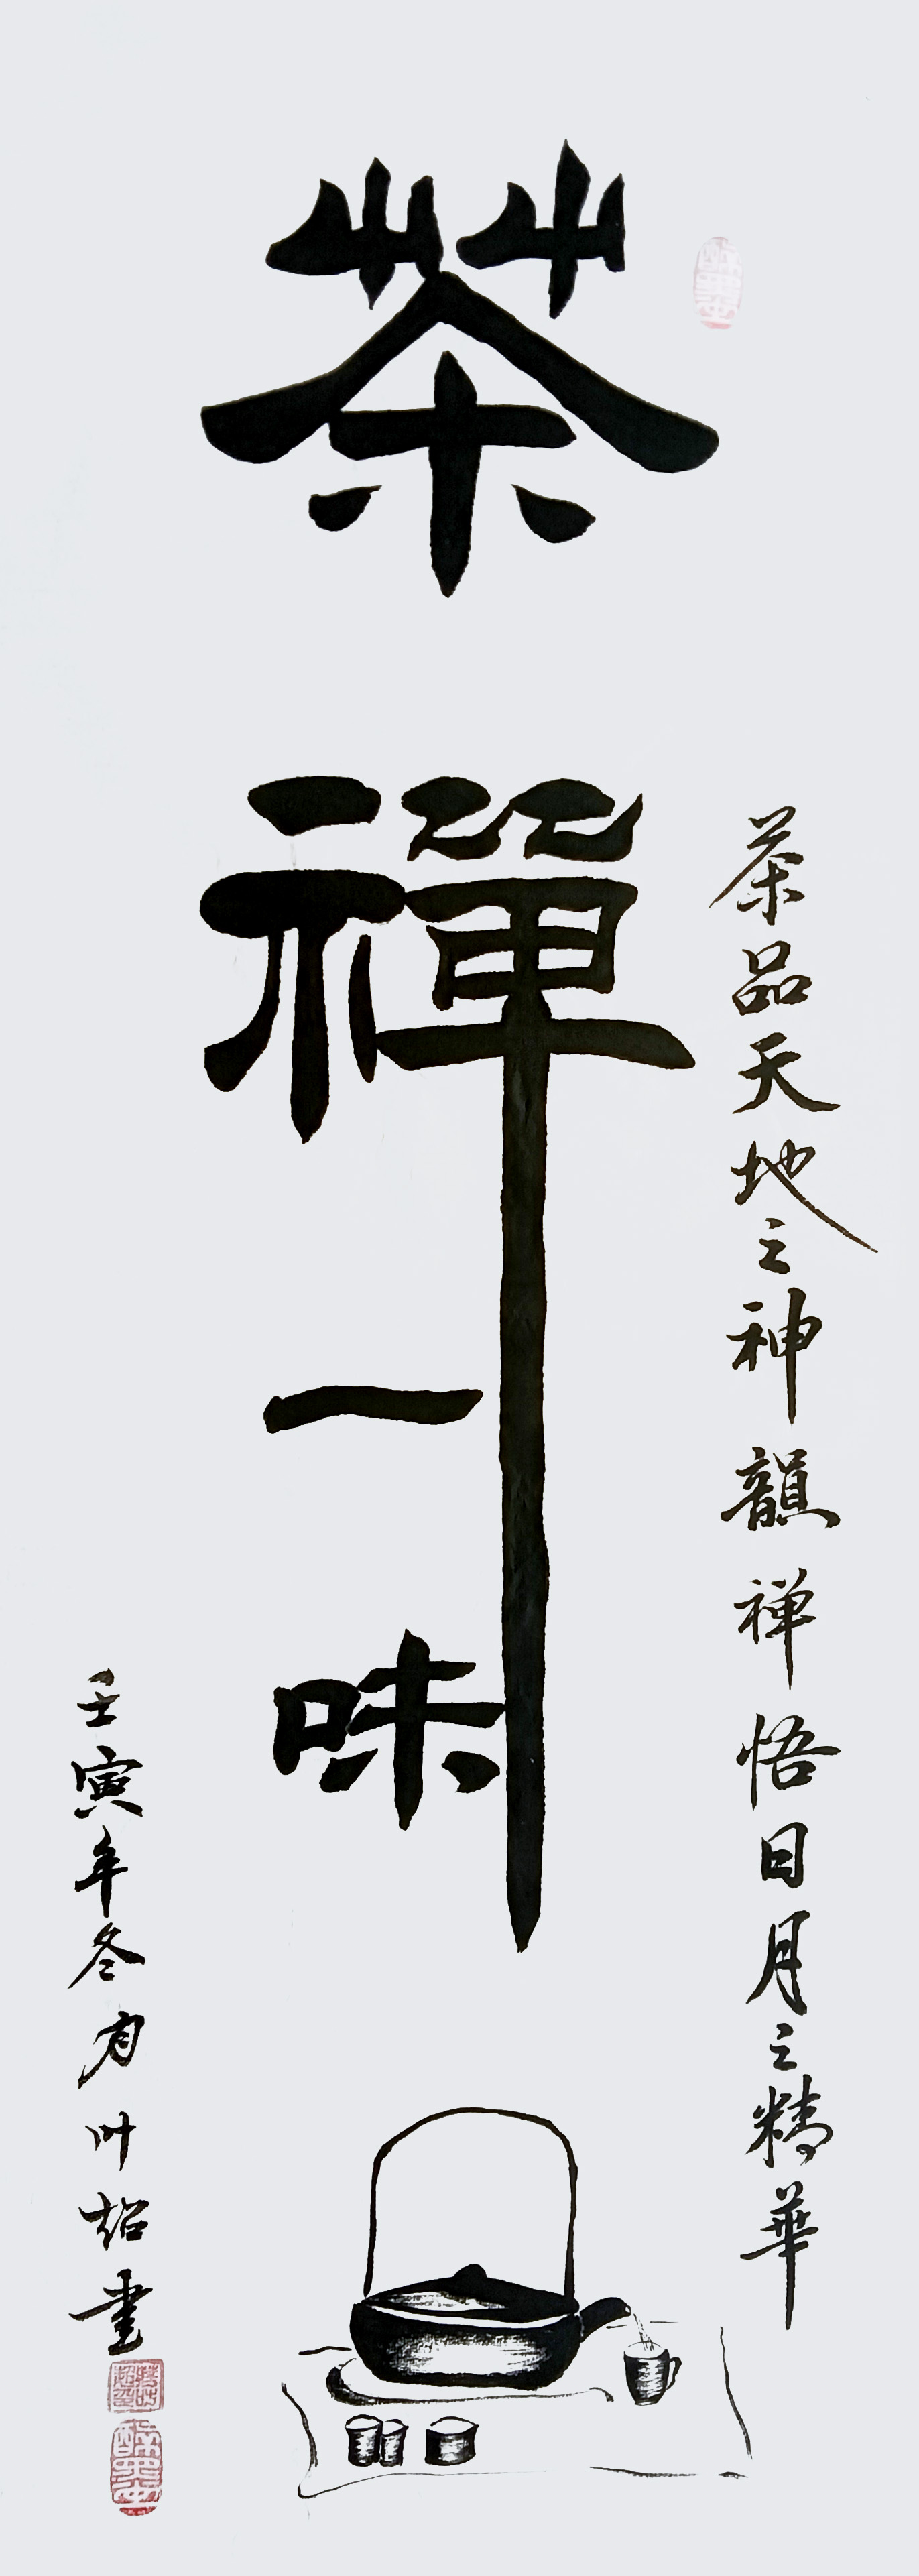 茶品天地之神韻禅悟日月之精華
茶禪一味
壬寅年冬叶書